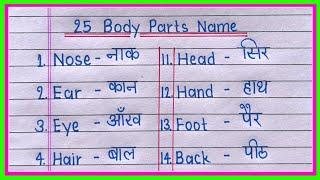 25 Body Parts Name
1. Nose - नाक
2. Ear - कान
3. Eye - आँख
4. Hair - बाल
11. Head - सिर
12. Hand - हाथ
13. Foot - पैर
14. Back - पीठ